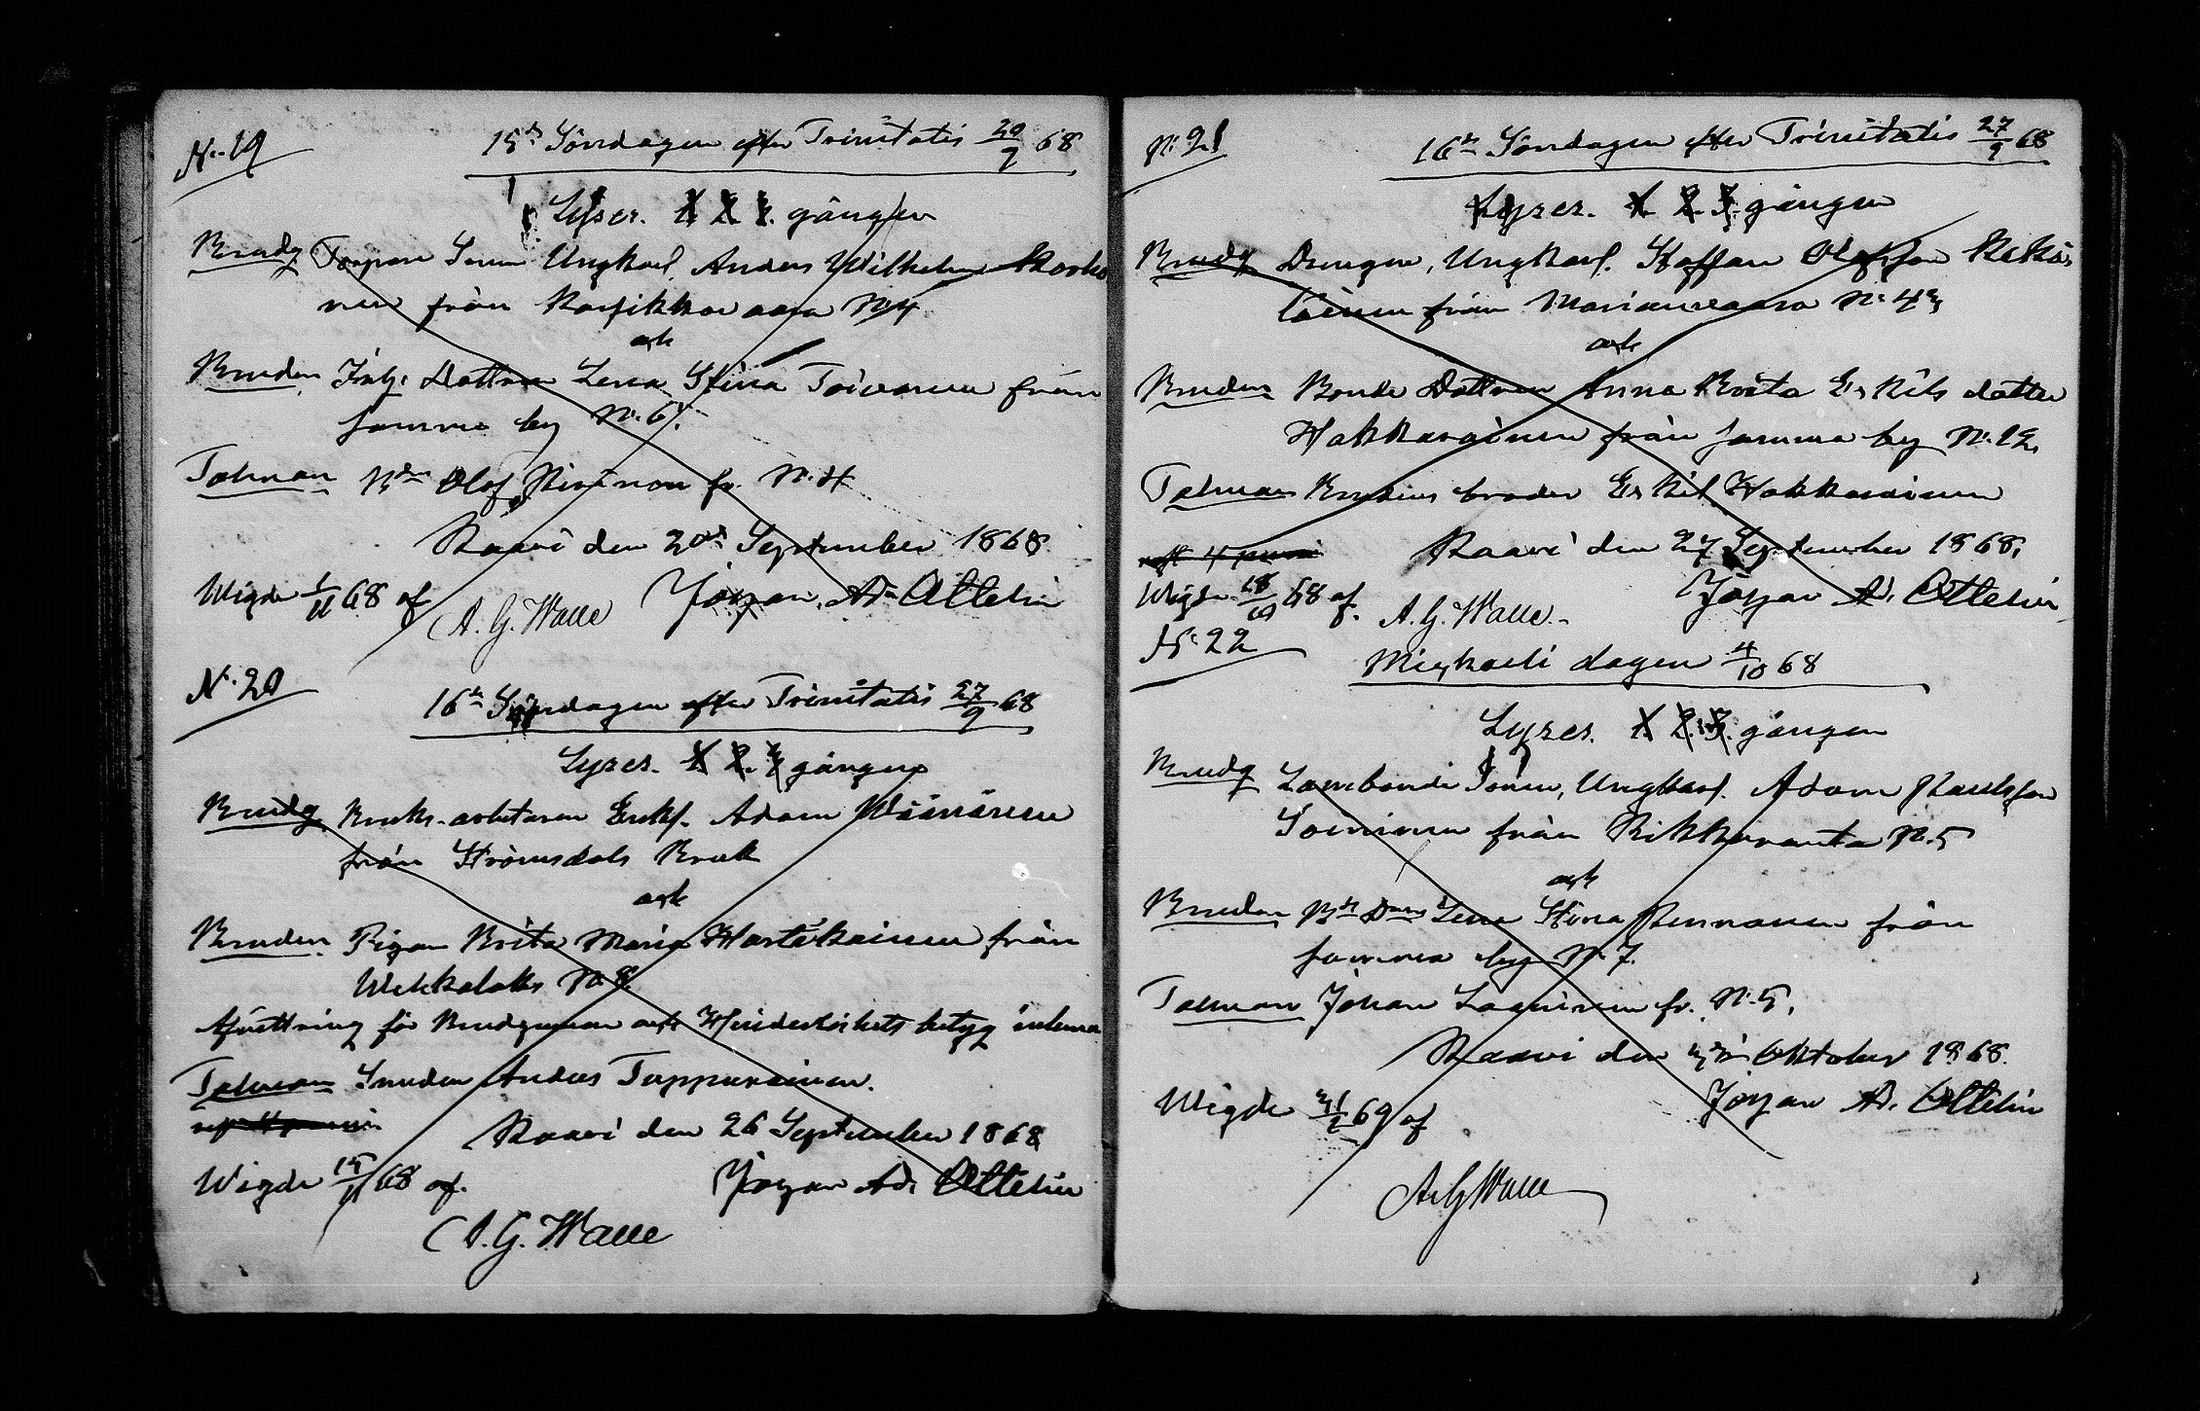 N:19
15de Söndagen efter Trinitatis 20/9 68
Lyses. 1. 2. 3. gången
Brudg Torpare Sonen Ungkarl. Anders Wilhelm Korho
nen från Karsikkovaara N:4
och
Bruden Inh: Dottren Lena Stina Toivanen från
samma by N:6.
Talman Bden Olof fr. N:4
Kaavi den 20de September 1868
Wigde 1/11 68 af
A. G. Walle Johan Ad. Ottelin
N:20
16de Söndagen efter Trinitatis 27/9 68
Lyses. 1. 2. 3. gången
Brudg Bruks-arbetaren Enkl. Adam Väänänen
från Strömsdals Bruk
och
Bruden Pigan Brita Maria Hartikainen från
N:8
Afvittring för Brudgumen och Hinderlöshets betyg inlemna
Talman Smeden Anders Tuppurainen.
Kaavi den 26 September 1868
Wigde 15/11 68 af.
Johan Ad. Ottelin
A. G. Walle
N:21
16de Söndagen efter Trinitatis 27/9 68
Lyses. 1. 2. 3. gången
Brudg Drengen, Ungkarl. Staffan Olofsson Kekä-
läinen från Marianvaara N:43
och
Bruden Bonde Dottren Anna Brita Eskils dotter
Hakkarainen från samma by N:12
Talman Brudens broder Eskil Hakkarainen
Kaavi den 27 September 1868.
Wigde 18/10 68 af. A. G. Walle.
Johan Ad. Ottelin
N:22
Michaeli dagen 4/10 68
Lyses. 1. 2. 3. gången
Brudg Landbonde Sonen, Ungkarl. Adam Paulsson
Soininen från Rikkaranta N:5
och
Bruden Bde Dren Lena Stina Pennanen från
samma by N:7.
Talman Johan fr. N:5.
Kaavi den Oktober 1868
Wigde 69 af
Johan Ad. Ottelin
A G Walle